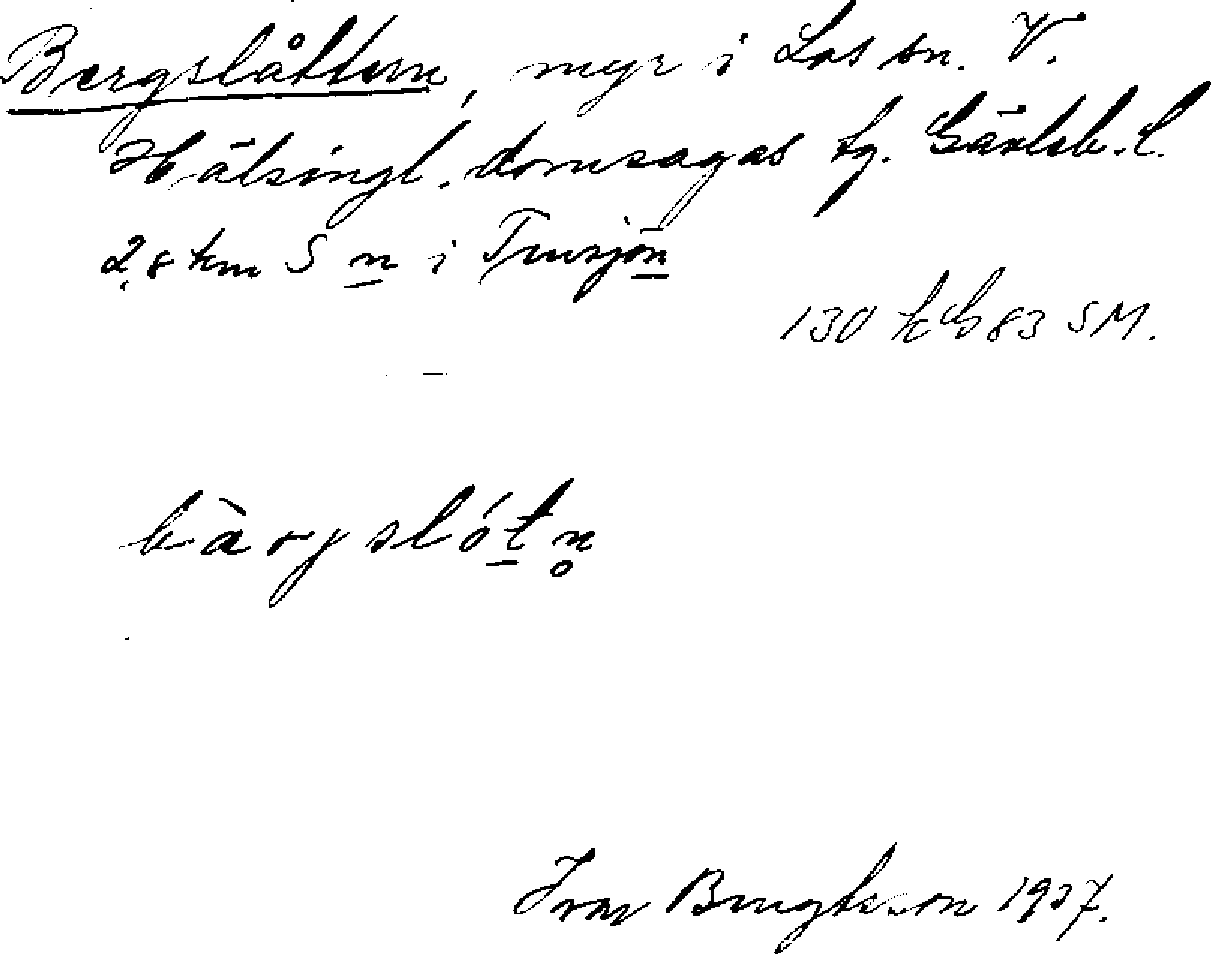 Bergslåttern, myr i Los sn. V.
Hälsingl. domsagas tg. Gävleb. l.
2,8 km S n i Tensjön
130 h G 83 SM.
bàrgslótn
Ivar Bengtsson 1937.